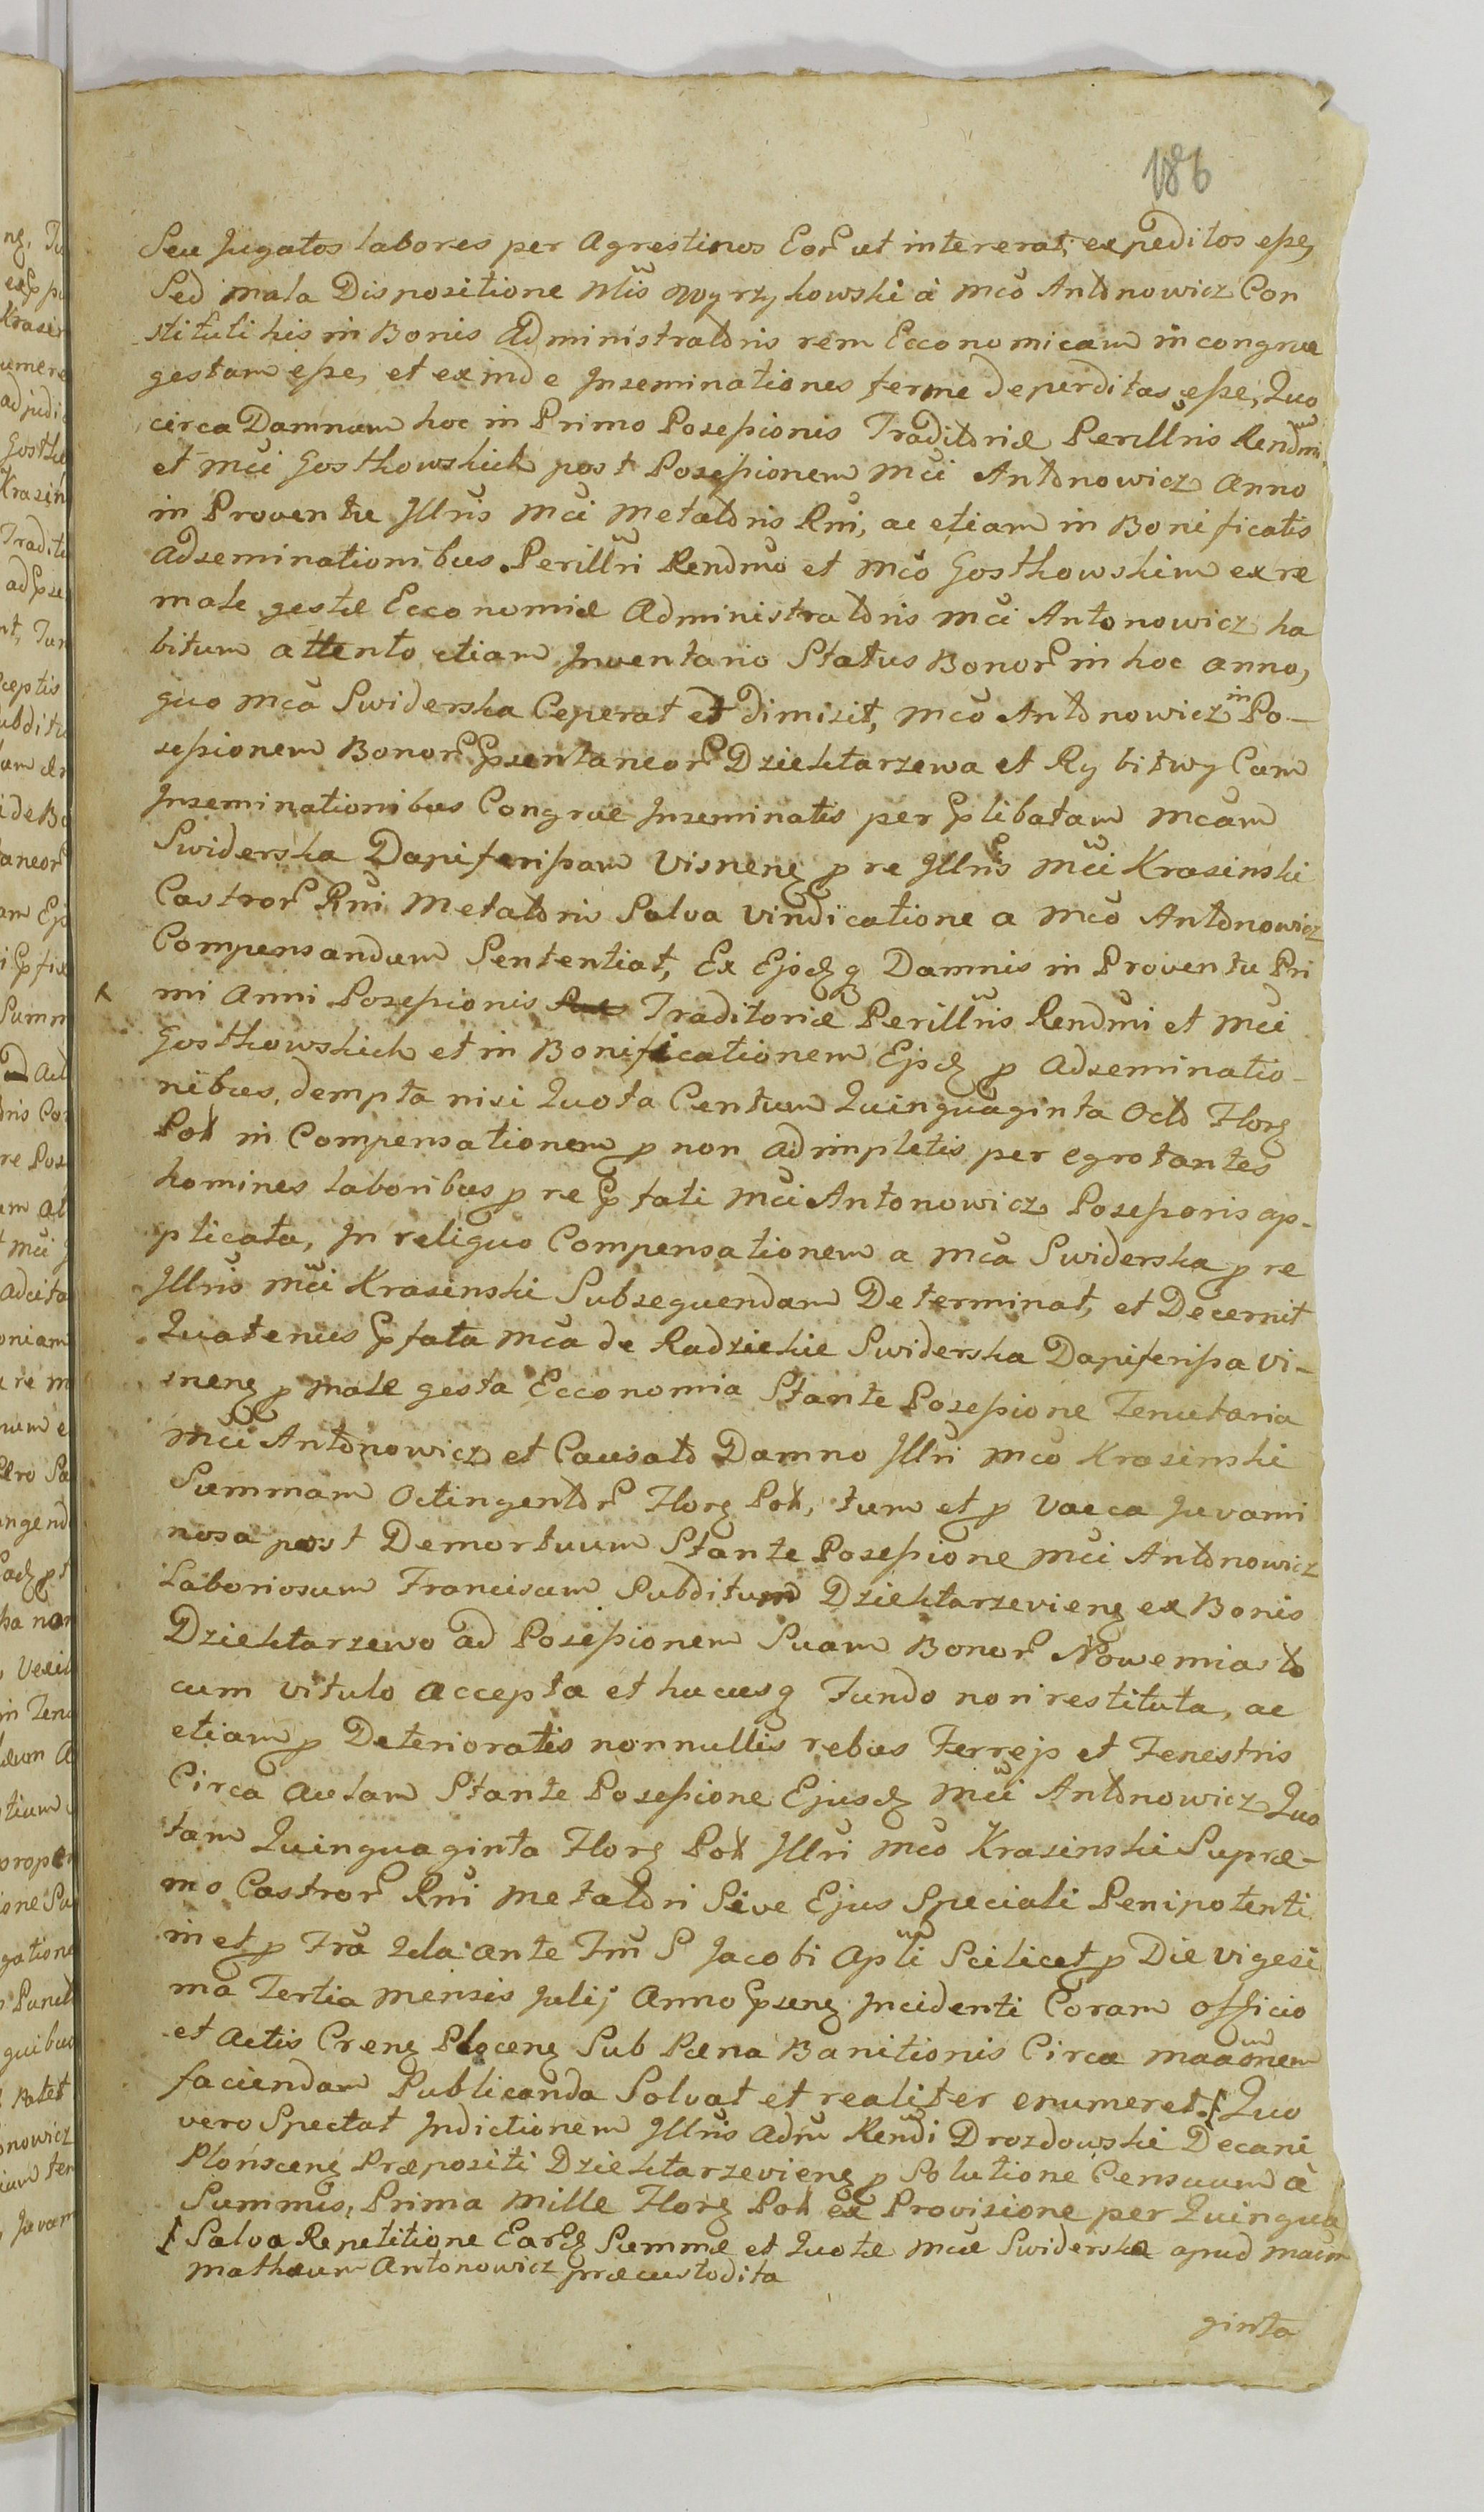 186
Seu Jugatos labores per Agrestinos Eor ut intererat, expeditos esse,
Sed mala Dispositione Mis Wyrzykowski à Mco Antonowicz Con
stituti his in Bonis Administratoris rem Economicam incongrue
gestam esse, et exinde Inseminationes ferme deperditas esse, Quo
circa Damnum hoc in Primo Posessionis Traditoriæ Perillris Rendmi
et Mci Gostkowskich post Posessionem Mci Antonowicz Anno
in Proventu Illris Mci Metatoris Rni, ac etiam in Bonificatis
Adseminationibus Perillri Rendmo et Mco Gostkowskim ex re
male gestæ Economiæ Administratoris Mci Antonowicz ha
bitum attento etiam Inventario Status Bonor in hoc anno,
quo Mca Swiderska Ceperat et dimisit, Mco Antonowicz in Po-
sessionem Bonor Psentaneor Dziektarzewa et Rybitwy Cum
Inseminationibus Congrue Inseminatis per Plibatam Mcam
Swiderska Dapiferissam Visneng p re Illris Mci Krasinski
Castror Rni Metatoris Salva Vindicatione a Mco Antonowicz
Compensandum Sententiat, Ex Ejsdq Damnis in Proventu Pri
mi Anni Posessionis Traditoriæ Perillris Rendmi et Mci
Gostkowskich et in Bonificationem Ejsd p Adseminatio-
nibus, dempta nisi Quota Centum Quinquaginta Octo Flor
Pol in Compensationem p non adimpletis per egrotantes
homines laboribus p re P fati Mci Antonowicz Posessoris ap-
plicata, In reliquo Compensationem a Mca Swiderska p re
Illris Mci Krasinski Subsequendam Determinat, et Decernit
Quatenus P fata Mca de Radzickie Swiderska Dapiferissa Vi-
sneng p male gesta Economia Stante Posessione Tenutaria
Mci Antonowicz et Causato Damno Illri Mco Krasinski
Summam Octingentor Flor Pol, tum et p Vacca Juvami
nosa post Demortuum Stante Posessione Mci Antonowicz
Laboriosum Franciscum Subditum Dziektarzevieng ex Bonis
Dziektarzewo ad Posessionem Suam Bonor Nowemiasto
cum vitulo accepta et hucusq Fundo non restituta, ac
etiam p Deterioratis nonnullis rebus Ferrejs et Fenestris
Circa Aulam Stante Posessione Ejusd Mci Antonowicz Quo
tam Quinquaginta Flor Pol Illri Mco Krasinski Supræ-
mo Castror Rni Metatori Sive Ejus Speciali Penipotenti
in et p Fra 2da ante Fm S Jacobi Apli Scilicet p Die vigesi
ma Tertia mensis Julij Anno Pseng Incidenti Coram officio
et Actis Creng Ploceng Sub Pæna Banitionis Circa maaonem
faciendam Publicanda Solvat et realiter enumeret. Quo
vero Spectat Indictionem Illris Adm Rendi Drozdowski Decani
Płonsceng Præpositi Dziektarzevieng p Solutione Censuum à
Summis, Prima Mille Flor Pol ex Provisione per Quinqua
Salva Repetitione Eard Summæ et Quotæ Mcæ Swiderska apud Macm
Mathæum Antonowicz præcustodita
ginta